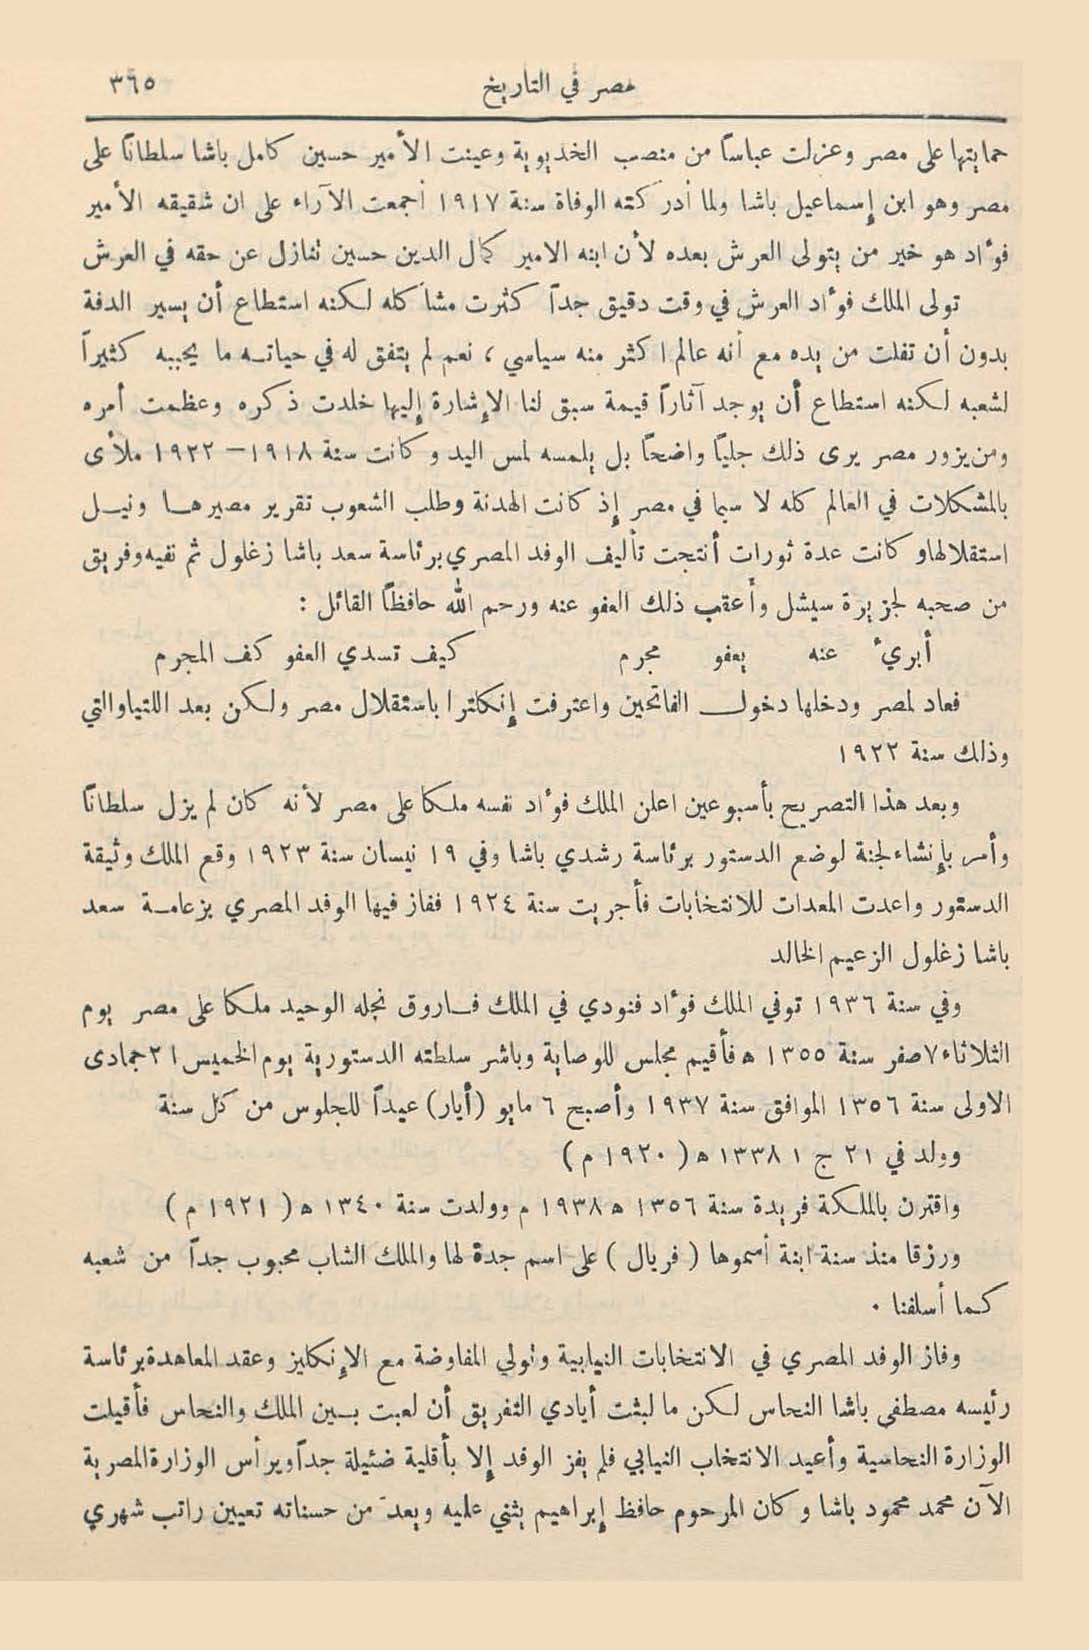 مصر في التاريخ ٣٦٥
حمايتها على مصر وعزلت عباساً من منصب الخديوية وعينت الأمير حسين كامل باشا سلطاناً على
مصر وهو ابن إسماعيل باشا ولما أدركته الوفاة سنة ١٩١٧ أجمعت الآراء على ان شقيقه الأمير
فؤاد هو خير من يتولى العرش بعده لأن ابنه الامير كمال الدين حسين تنازل عن حقه في العرش
تولى الملك فؤاد العرش في وقت دقيق جداً كثرت مشاكله لكنه استطاع أن يسير الدفة
بدون أن تفلت من يده مع أنه عالم اكثر منه سياسي ، نعم لم يتفق له في حياته ما يحببه كثيراً
لشعبه لكنه استطاع أن يوجد آثاراً قيمة سبق لنا الإشارة إليها خلدت ذكره وعظمت أمره
ومن يزور مصر يرى ذلك جلياً واضحاً بل يلمسه لمس اليد وكانت سنة ١٩١٨ – ١٩٢٢ ملأى
بالمشكلات في العالم كله لا سيما في مصر إذ كانت الهدنة وطلب الشعوب تقرير مصيرها ونيل
استقلالها وكانت عدة ثورات أنتجت تأليف الوفد المصري برئاسة سعد باشا زغلول ثم نفيه وفريق
من صحبه لجزيرة سيشل وأعقب ذلك العفو عنه ورحم الله حافظاً القائل :
أبريءٌ عنه يعفو مجرم كيف تسدي العفو كف المجرم
فعاد لمصر ودخلها دخول الفاتحين واعترفت إنكلترا باستقلال مصر ولكن بعد اللتيا والتي
وذلك سنة ١٩٢٢
وبعد هذا التصريح بأسبوعين اعلن الملك فؤاد نفسه ملكا على مصر لأنه كان لم يزل سلطاناً
وأمر بإنشاء لجنة لوضع الدستور برئاسة رشدي باشا وفي ١٩ نيسان سنة ١٩٢٣ وقع الملك وثيقة
الدستور واعدت المعدات للانتخابات فأجريت سنة ١٩٢٤ ففاز فيها الوفد المصري بزعامة سعد
باشا زغلول الزعيم الخالد
وفي سنة ١٩٣٦ توفي الملك فؤاد فنودي في الملك فاروق نجله الوحيد ملكا على مصر يوم
الثلاثاء ٧ صفر سنة ١٣٥٥ ه فأقيم مجلس للوصاية وباشر سلطته الدستورية يوم الخميس ٢١ جمادى
الاولى سنة ١٣٥٦ الموافق سنة ١٩٣٧ وأصبح ٦ مايو (أيار) عيداً للجلوس من كل سنة
وولد في ٢١ ج ١ ١٣٣٨ ه ( ١٩٢٠ م )
واقترن بالملكة فريدة سنة ١٣٥٦ ه ١٩٣٨ م وولدت سنة ١٣٤٠ ه ( ١٩٢١ م )
ورزقا منذ سنة ابنة أسموها ( فريال ) على اسم جدة لها والملك الشاب محبوب جداً من شعبه
كما أسلفنا .
وفاز الوفد المصري في الانتخابات النيابية وتولي المفاوضة مع الإنكليز وعقد المعاهدة برئاسة
رئيسه مصطفى باشا النحاس لكن ما لبثت أيادي التفريق أن لعبت بين الملك والنحاس فأقيلت
الوزارة النحاسية وأعيد الانتخاب النيابي فلم يفز الوفد إلا بأقلية ضئيلة جداً ويرأس الوزارة المصرية
الآن محمد محمود باشا وكان المرحوم حافظ إبراهيم يثني عليه ويعدّ من حسناته تعيين راتب شهري